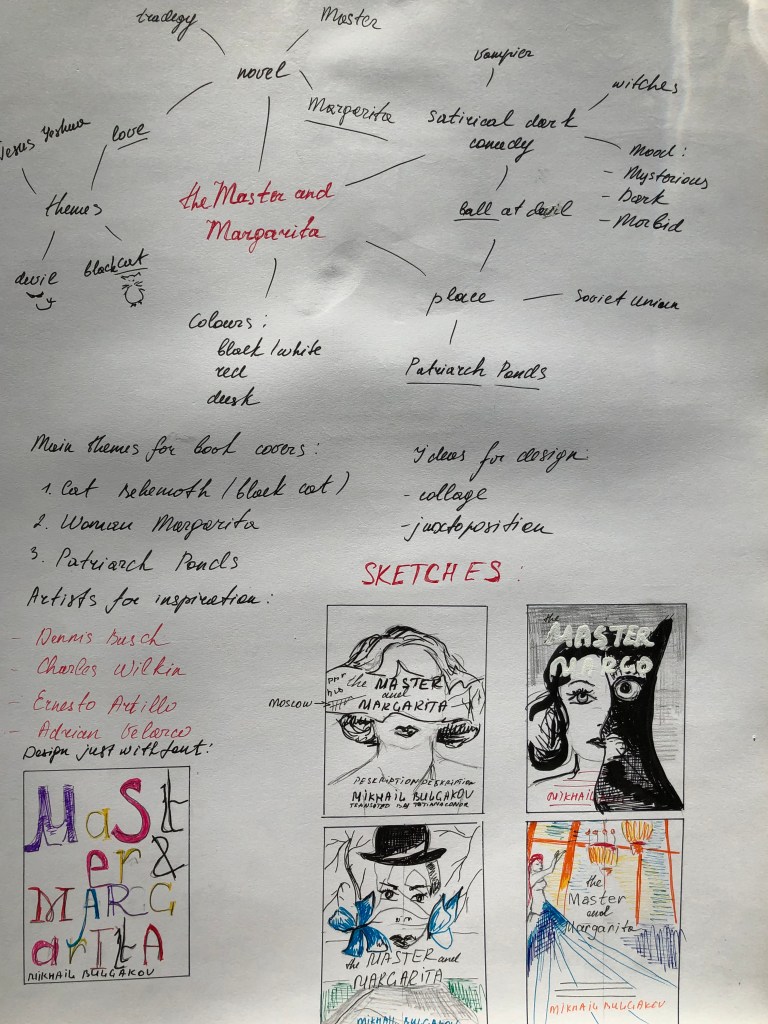 tradegy
Master
novel
vampier
witches
Margarita
satirical dark
comedy
Jesus Yeshua
love
Mood:
- Mysterious
- Dark
- Morbid
themes
the Master and
Margarita
ball at devil
devil
black cat
place
Soviet Union
Colours:
black/white
red
dusk
Patriarch Ponds
Main themes for book covers:
1. Cat Behemoth (black cat)
2. Woman Margarita
3. Patriarch Ponds
Ideas for design:
- collage
- juxtoposition
Artists for inspiration:
- Dennis Busch
- Charles Wilkin
- Ernesto Artillo
- Adrian Velarco
SKETCHES:
Moscow
the MASTER
and
MARGARITA
DESCRIPTION DESCRIPTION
MIKHAIL BULGAKOV
TRANSLATED BY
the
MASTER
MARGO
MIKHAIL
Design just with font:
MaSt
er &
MARG
arItA
MIKHAIL BULGAKOV
the MASTER and
MARGARITA
MIKHAIL BULGAKOV
the
Master
and
Margarita
MIKHAIL BULGAKOV